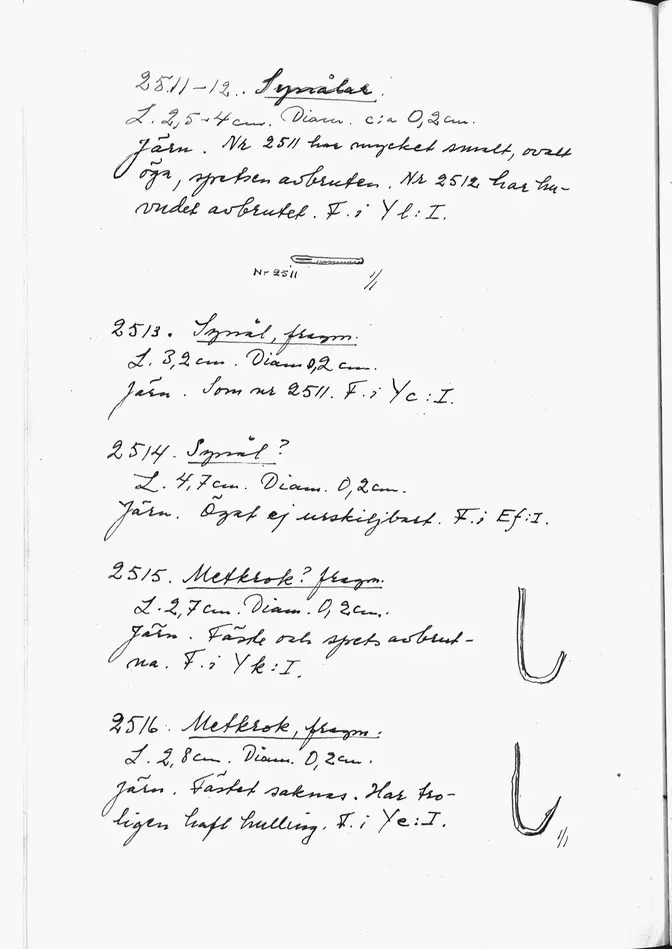 2511-12. Synålar.
L. 2,5-4 cm. Diam. c:a 0,2 cm.
Järn. Nr 2511 har mycket smalt, ovalt
öga, spetsen avbruten. Nr 2512 har hu-
vudet avbrutet. F. i Yl:I.
Nr 2511
1/1
2513. Synål, fragm.
L. 3,2 cm. Diam 0,2 cm.
Järn. Som nr 2511. F. i Yc:I.
2514. Synål?
L. 4,7 cm. Diam. 0,2 cm.
Järn. Ögat ej urskiljbart. F. i Ef:I.
2515. Metkrok? fragm.
L. 2,7 cm. Diam. 0,2 cm.
Järn. Fäste och spets avbrut-
na. F. i Yk:I.
2516. Metkrok, fragm.
L. 2,8 cm. Diam. 0,2 cm.
Järn. Fästet saknas. Har tro-
ligen haft hulling. F. i Ye:I.
1/1